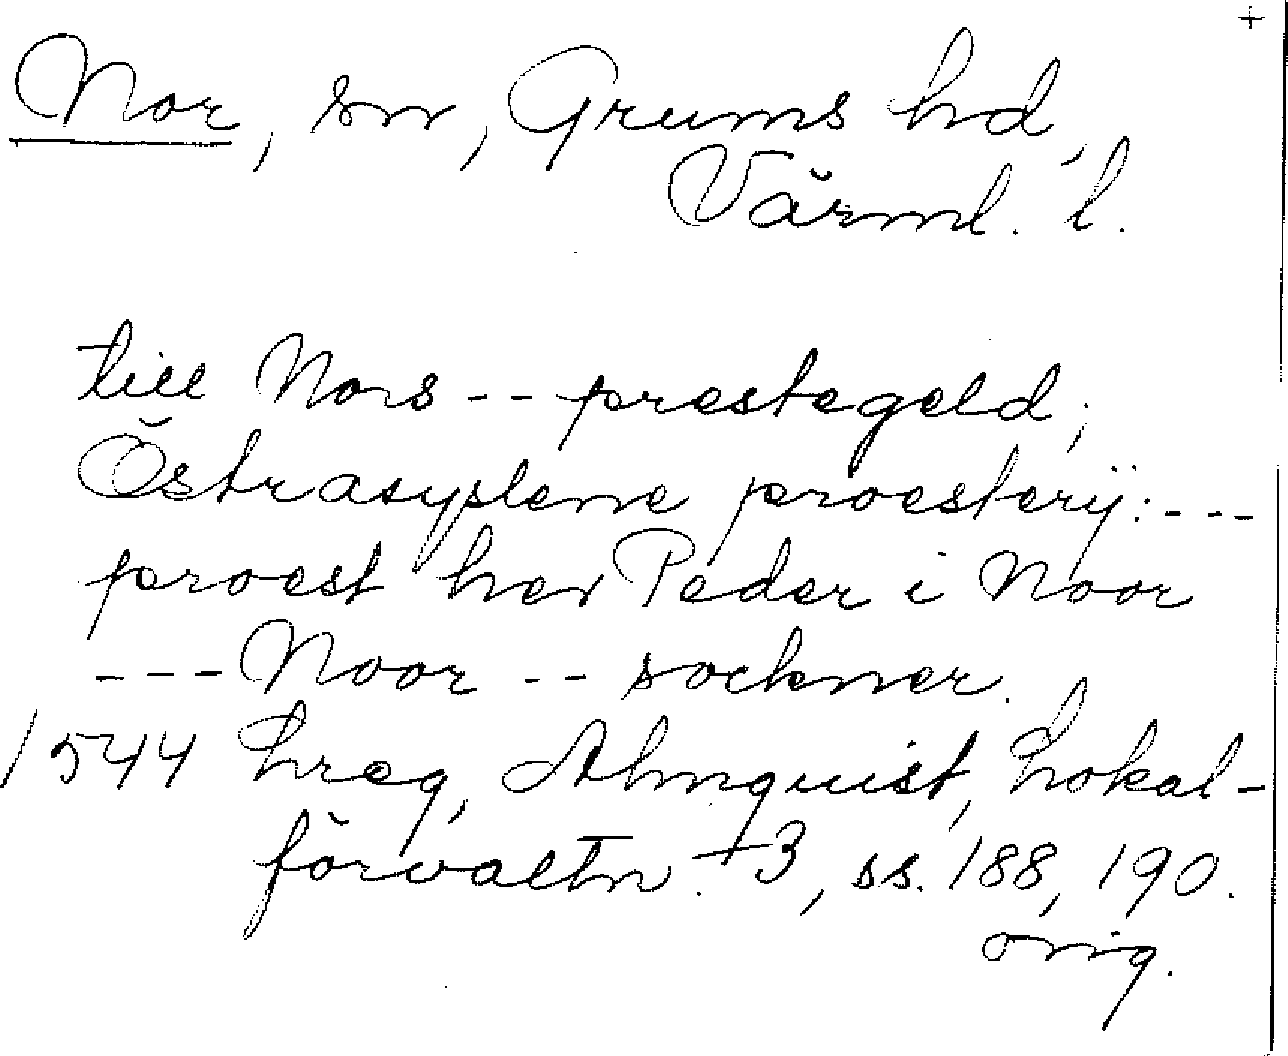 +
Nor, sn, Grums hd,
Värml. l.
till Nors -- prestegeld;
Östrasyslene proesterij: ---
proest her Peder i Noor
--- Noor -- sockner.
1544 Lreg, Almquist, Lokal-
förvaltn. +3, ss. 188, 190.
orig.